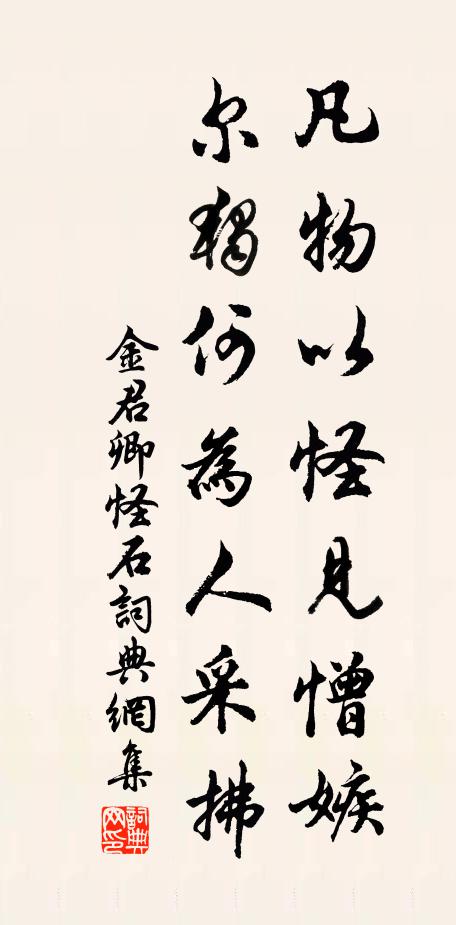 凡物以怪見憎嫉
尔獨何為人采拂
金君卿怪石詞典網集
詞典
网印